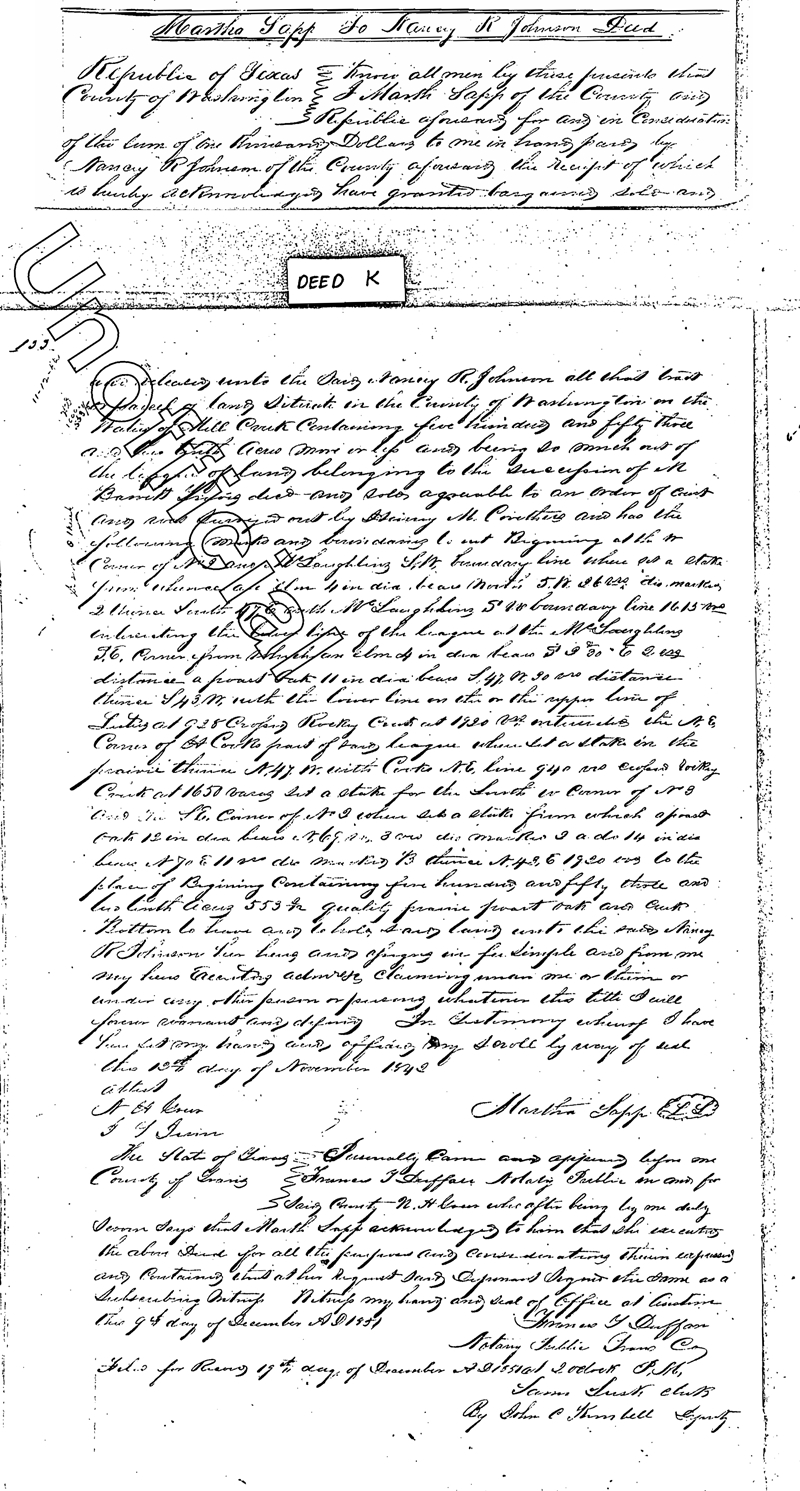 Martha Sapp To Nancy R Johnson Deed
Republic of Texas Know all men by these presents that
County of Washington I Marth Sapp of the County and
Republic aforesaid for and in Consideration
of the sum of one thousand Dollars to me in hand paid by
Nancy R Johnson of the County aforesaid the receipt of which
is hereby acknowledged have granted bargained sold and
DEED K
Unofficial
133
released unto the Said Nancy R. Johnson all that tract
or parcel of land Situate in the County of Washington on the
Waters of Mill Creek Containing five hundred and fifty three
and two tenths Acres more or less and being so much out of
the league of land belonging to the succession of
Barrett decd and sold agreeable to an order of court
and was surveyed out by M. and has the
following marks and boundaries to wit Begining at the W
Corner of No and McLaughlins S.W. boundary line where set a stake
from whence an elm 4 in dia. bears North 5. W. 26 vrs dis. marked
2 thence South 47 E with McLaughlins S W boundary line 1615 vrs
intersecting the line of the league at the McLaughlins
S. E. Corner from which an elm 4 in dia bears E 2 vrs
distance a poast oak 11 in dia bears S. 47. W. 20 vrs distance
thence S 43 W. with the lower line on the or the upper line of
at 925 Crossed Rocky Creek at 1720 vrs intersects the N. E
Corner of Cooks part of said league where set a stake in the
prairie thence N. 47. W. with Cooks N. E. line 940 vrs crossed Rocky
Creek at 1650 varas set a stake for the South W Corner of No
and the S E. Corner of No where set a stake from which a poast
oak 12 in dia bears N. 69 3 vrs dis marked a do 14 in dia
bears N 70 E 11 vrs dis marked B thence N. 43. E 1920 vrs to the
place of Begining Containing five hundred and fifty three and
two tenth acres 553 2/10 quality prairie poast oak and creek
Bottom to have and to hold said land unto the said Nancy
R Johnson her heirs and assigns in fee simple and from me
my heirs Executors admrs claiming under me or them or
under any other person or persons whatever this title I will
forever warrant and defend In Testimony whereof I have
here set my hand and affixed my scroll by way of seal
this 12th day of November 1842
Attest
N H
Martha Sapp
The State of Texas Personally Came and appeared before me
County of Travis Francis T Duffau Notary Public in and for
Said County N. H. who after being by me duly
Sworn Says that Marth Sapp acknowledged to him that she executed
the above Deed for all the purposes and considerations therein expressed
and Contained that at her request said Deponent Signed the same as a
Subscribing Witness Witness my hand and seal of Office at Austin
this 9th day of December AD 1851
Francis T Duffau
Notary Public Travis Co
Filed for Record 19th day of December AD 1851 at 2 oclock P.M.
Sam Lusk clerk
By John C Kimbell Deputy